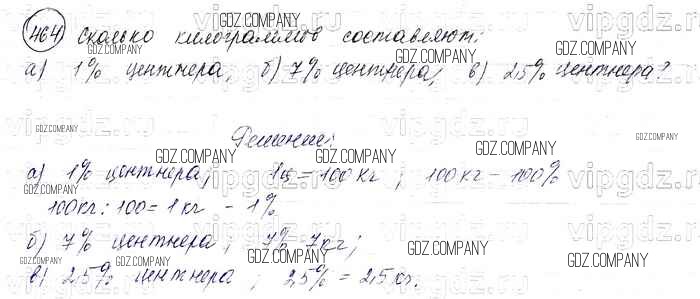 464) Сколько килограммов составляют:
а) 1% центнера, б) 7% центнера, в) 25% центнера?
Решение:
а) 1% центнера; 1ц = 100кг ; 100кг – 100%
100кг : 100 = 1кг – 1%
б) 7% центнера ; 7% = 7кг;
в) 25% центнера ; 25% = 25кг.
GDZ.COMPANY
vipgdz.ru